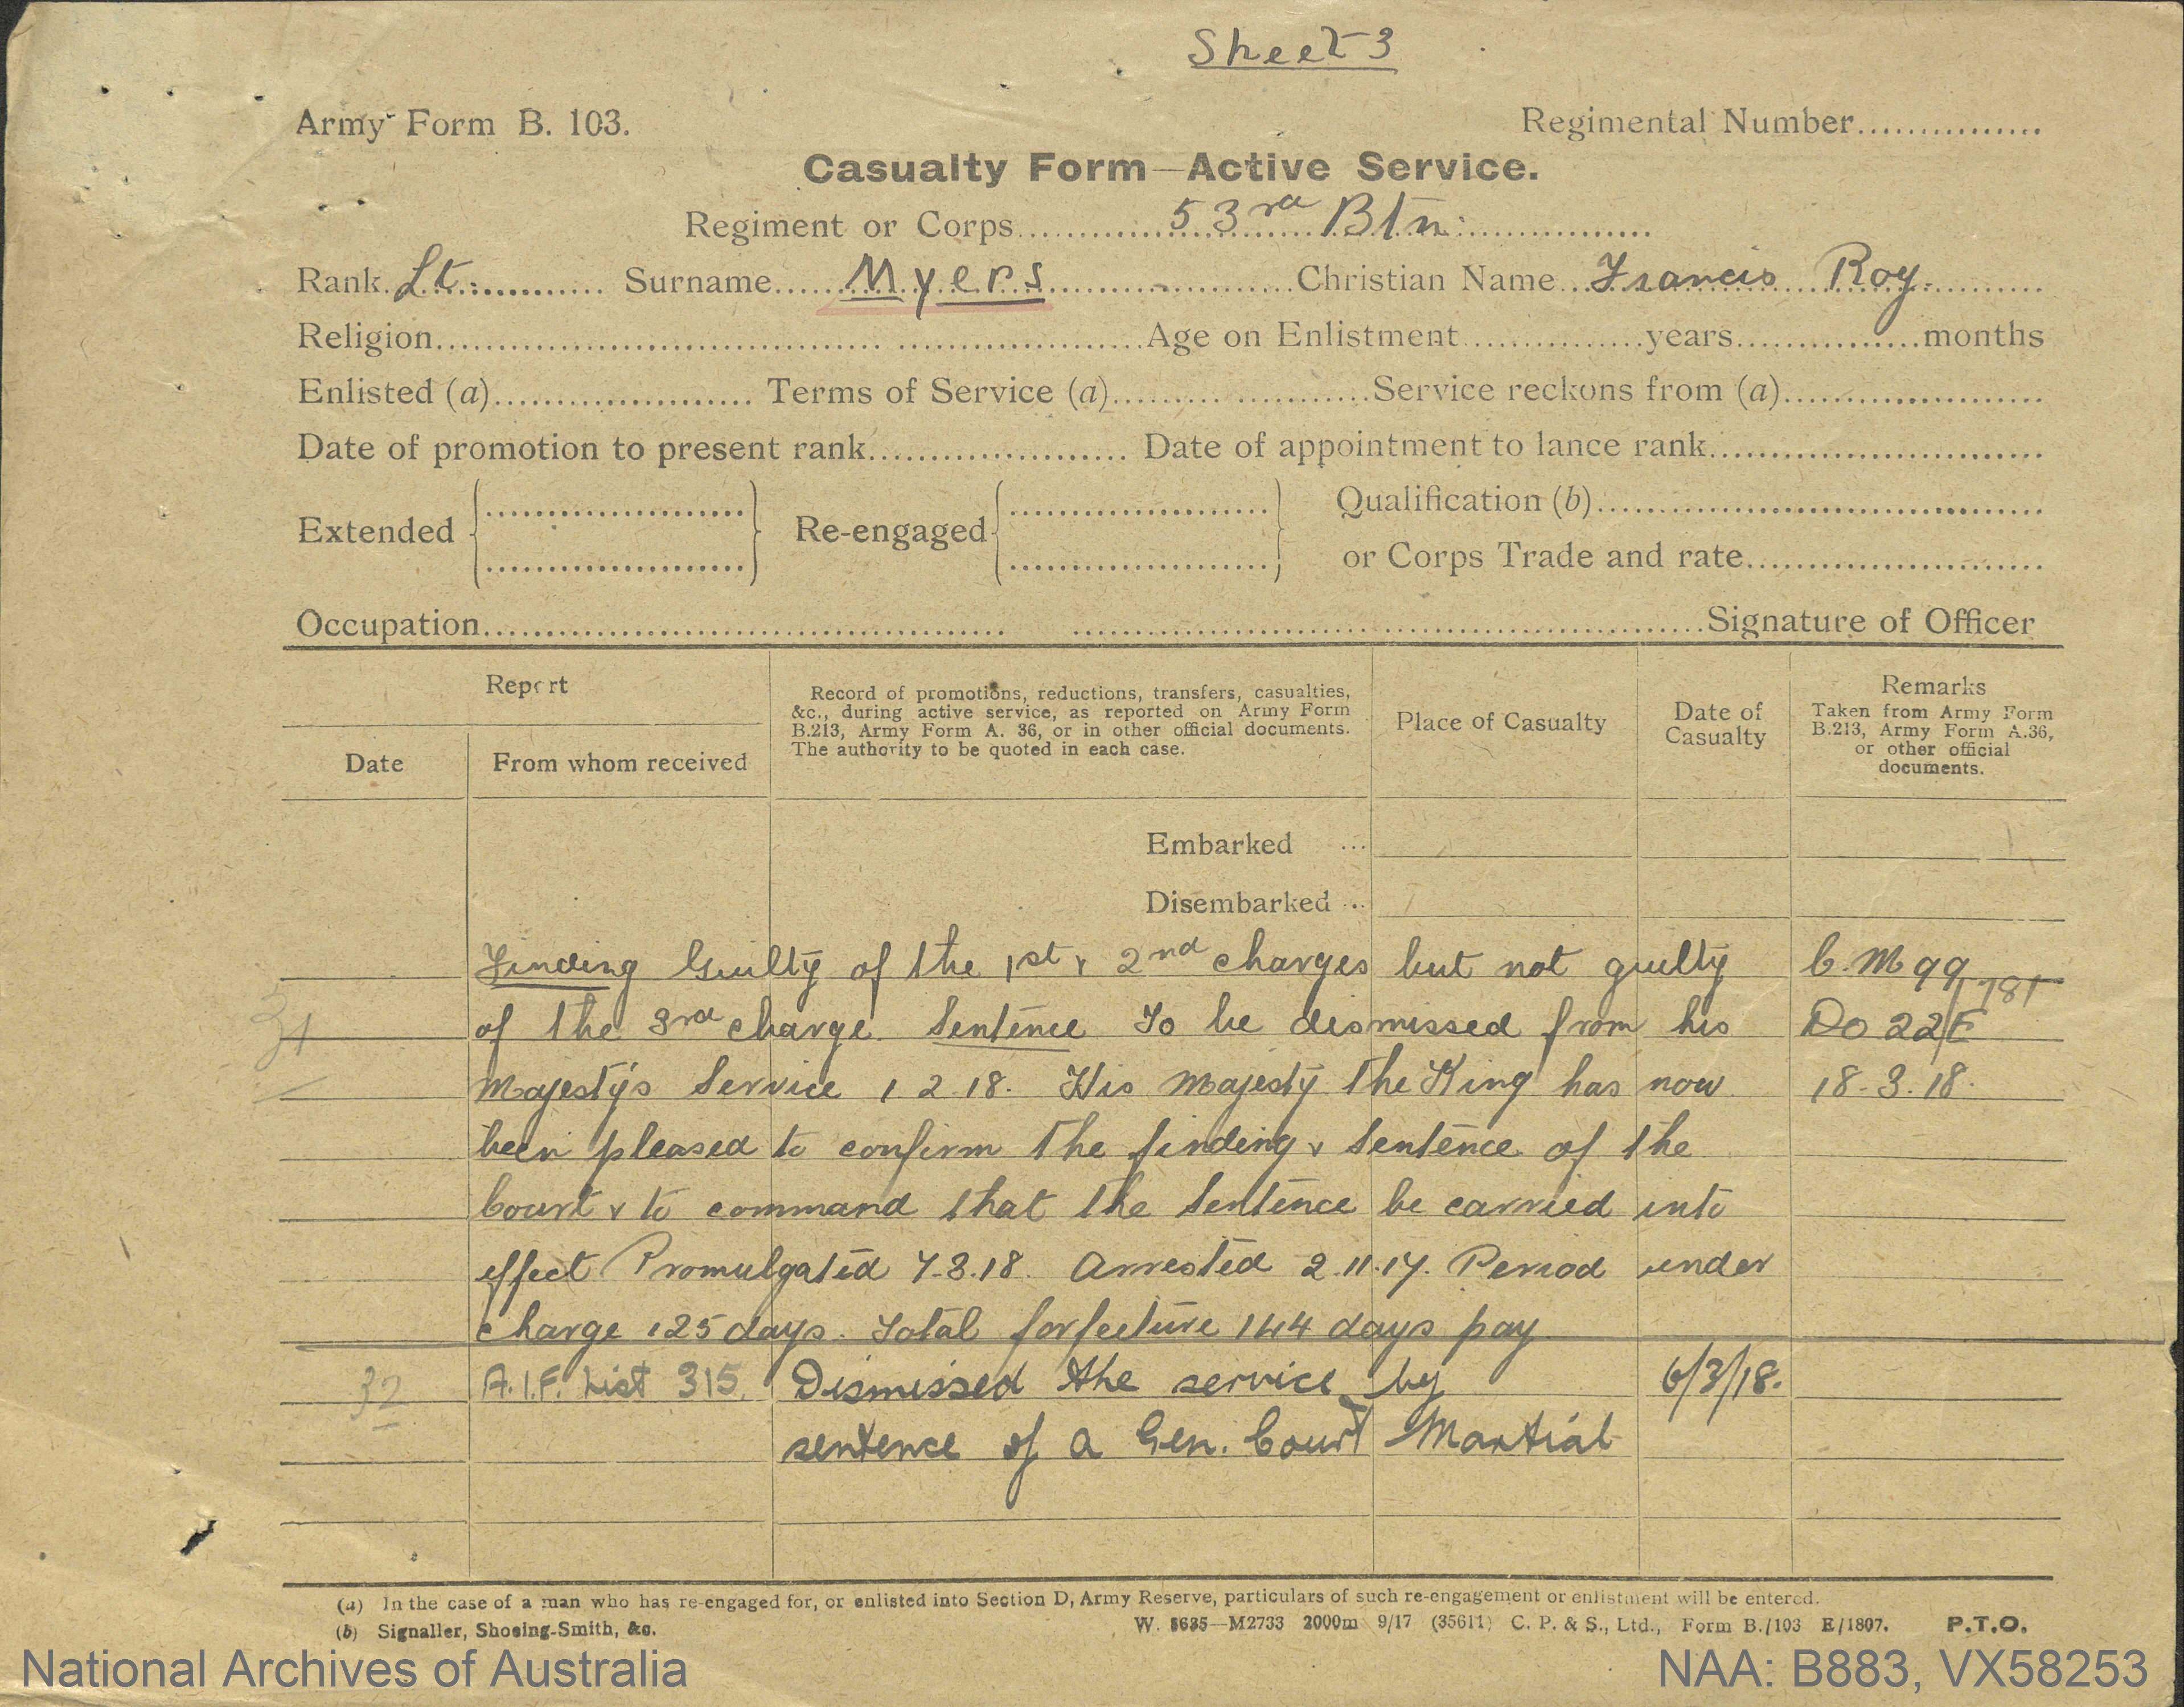 Sheet 3
Army Form B. 103.
Regimental Number...............
Casualty Form—Active Service.
Regiment or Corps 53rd Btn:
Rank Lt: Surname Myers Christian Name Francis Roy.
Religion Age on Enlistment years months
Enlisted (a) Terms of Service (a) Service reckons from (a)
Date of promotion to present rank Date of appointment to lance rank
Extended Re-engaged Qualification (b)
or Corps Trade and rate
Occupation Signature of Officer
Report
Date
From whom received
Record of promotions, reductions, transfers, casualties,
&c., during active service, as reported on Army Form
B.213, Army Form A. 36, or in other official documents.
The authority to be quoted in each case.
Place of Casualty
Date of
Casualty
Remarks
Taken from Army Form
B.213, Army Form A.36,
or other official
documents.
Embarked ...
Disembarked ...
Finding Guilty of the 1st & 2nd charges but not guilty C.M 99
of the 3rd charge. Sentence To be dismissed from his DO 22/E
Majesty's Service 1 2.18. His Majesty The King has now 18.3.18.
been pleased to confirm the finding & Sentence of the
Court & to command that the Sentence be carried into
effect Promulgated 7.3.18. Arrested 2.11.17. Period under
charge 125 days. Total forfeiture 144 days pay
32 A.I.F. List 315. Dismissed the service by 6/3/18.
sentence of a Gen. Court Martial
(a) In the case of a man who has re-engaged for, or enlisted into Section D, Army Reserve, particulars of such re-engagement or enlistment will be entered.
(b) Signaller, Shoeing-Smith, &c.
W. 8635—M2733 2000m 9/17 (35611) C. P. & S., Ltd., Form B./103 E/1807. P.T.O.
National Archives of Australia
NAA: B883, VX58253